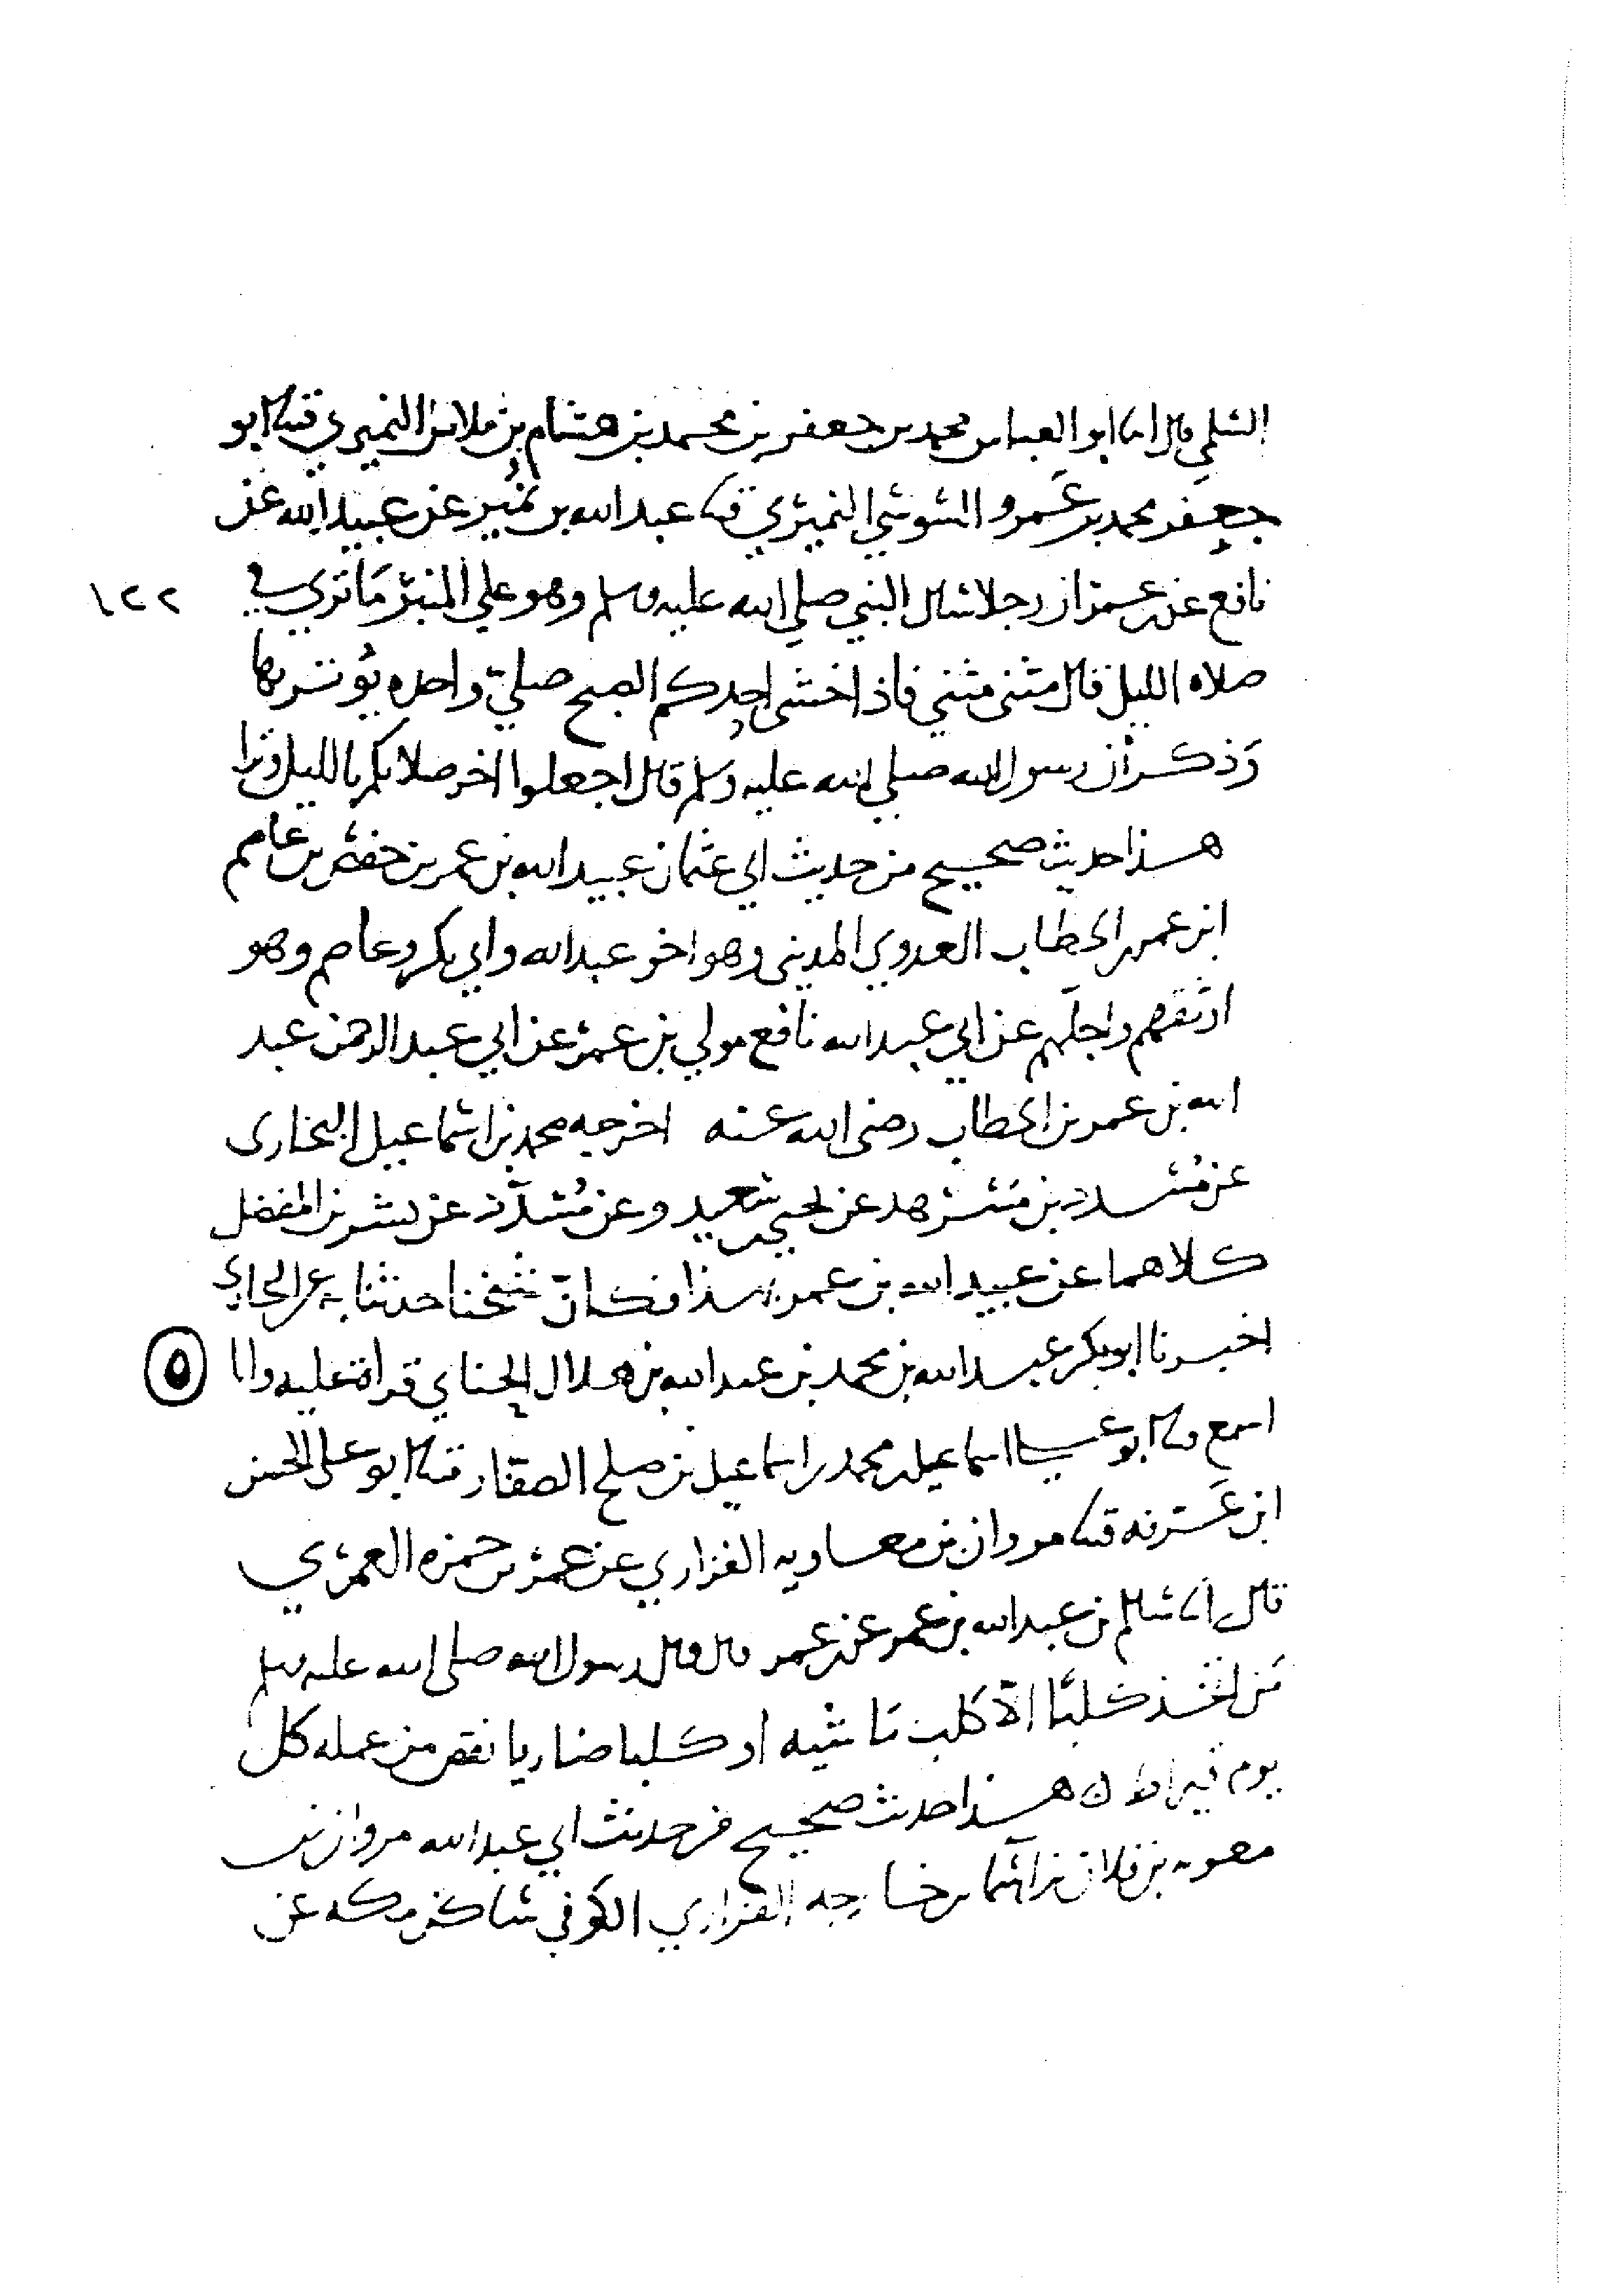 السلمي قال انا ابو العباس محمد بن جعفر بن محمد بن هشام بن ملاس النميري قثنا ابو
جعفر محمد بن عمرو السوسي النميري قثنا عبد الله بن نمير عن عبيد الله عن
نافع عن بن عمر ان رجلا سال النبي صلي الله عليه وسلم وهو علي المنبر ما تري في
١٢٢
صلاه الليل قال مثنى مثني فاذا خشى احدكم الصبح صلي واحده يوتر بها
وذكر ان رسول الله صلي الله عليه وسلم قال اجعلوا اخر صلاتكم بالليل وترا
هذا حديث صحيح من حديث ابي عثمان عبيد الله بن عمر بن حفص بن عاصم
ابن عمر بن الخطاب العدوي المديني وهو اخو عبد الله وابي بكر وعاصم وهو
اوثقهم واجلهم عن ابي عبد الله نافع مولي بن عمر عن ابي عبد الرحمن عبد
الله بن عمر بن الخطاب رضى الله عنه اخرجه محمد بن اسماعيل البخارى
عن مسدد بن مسرهد عن يحيى بن سعيد وعن مسدد عن بشر بن المفضل
كلاهما عن عبيد الله بن عمر بهذا فكان شيخنا حدثنا به عن البخاري
اخبرنا ابو بكر عبد الله بن محمد بن عبد الله بن هلال الحناي قراة عليه وانا
٥
اسمع قثنا ابو علي اسماعيل بن محمد بن اسماعيل بن صلح الصفار قثنا ابو على الحسن
ابن عرفه قثنا مروان بن معاويه الفزاري عن عمر بن حمزه العمري
قال انا سالم بن عبد الله بن عمر عن بن عمر قال قال رسول الله صلى الله عليه وسلم
من اتخذ كلبا الا كلب ماشيه او كلبا ضاريا نقص من عمله كل
يوم قيراط ه هذا حديث صحيح من حديث ابي عبد الله مروان بن
معويه بن فلان بن اسما بن خارجه الفزاري الكوفي ساكن مكه عن